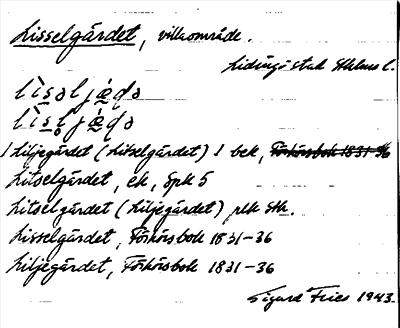 Lisselgärdet, villaområde.
Lidingö stad Sthlms l.
Liljegärdet (Litselgärdet) 1 bek, Förhörsbok 1831-36
Litselgärdet, ek, Spk 5
Litselgärdet (Liljegärdet) plk Sth.
Lisselgärdet, Förhörsbok 1831-36
Liljegärdet, Förhörsbok 1831-36
Sigurd Fries 1943.